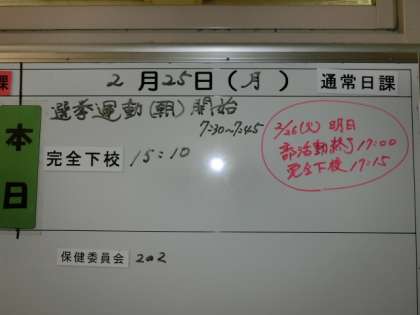 課
2月25日(月)
通常日課
本日
選挙運動(朝)開始
7:30~7:45
完全下校 15:10
2/26(火)明日
部活動終了17:00
完全下校17:15
保健委員会 202